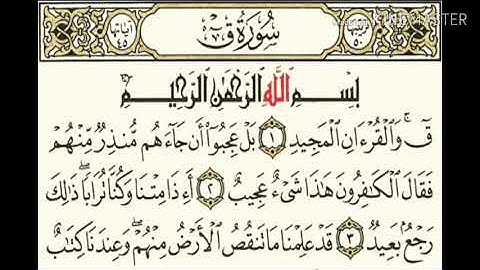 آياتها ٤٥
سُورَةُ قٓ
ترتيبها ٥٠
KINEMASTER
بِسْمِ اللَّهِ الرَّحْمَٰنِ الرَّحِيمِ
قٓ ۚ وَالْقُرْءَانِ الْمَجِيدِ ١ بَلْ عَجِبُوٓا أَن جَآءَهُم مُّنذِرٌ مِّنْهُمْ
فَقَالَ الْكَٰفِرُونَ هَٰذَا شَىْءٌ عَجِيبٌ ٢ أَءِذَا مِتْنَا وَكُنَّا تُرَابًا ۖ ذَٰلِكَ
رَجْعٌۢ بَعِيدٌ ٣ قَدْ عَلِمْنَا مَا تَنقُصُ الْأَرْضُ مِنْهُمْ ۖ وَعِندَنَا كِتَٰبٌ